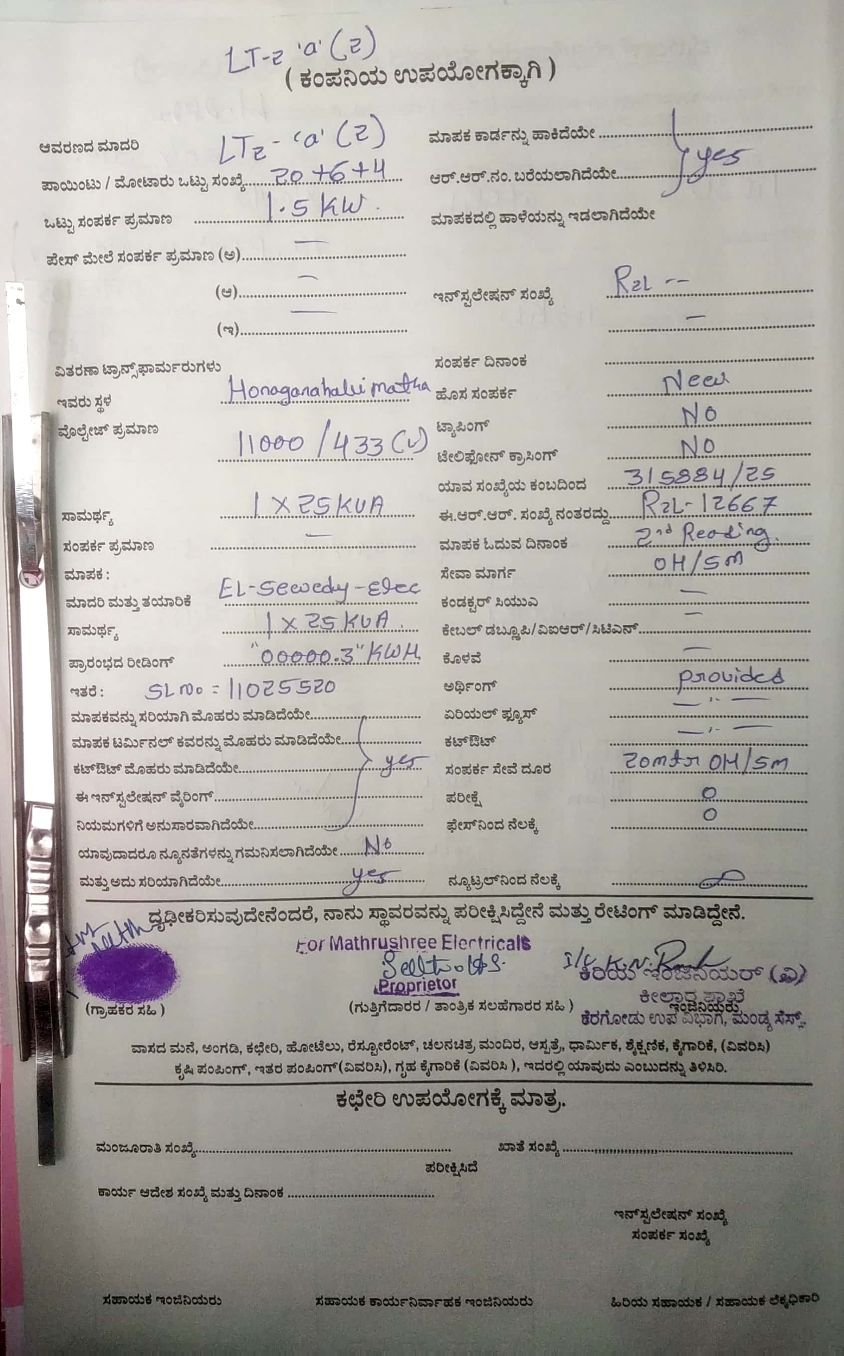 LT-2 'a' (2)
( ಕಂಪನಿಯ ಉಪಯೋಗಕ್ಕಾಗಿ )
ಆವರಣದ ಮಾದರಿ LT2 - 'a' (2)
ಪಾಯಿಂಟು / ಮೋಟಾರು ಒಟ್ಟು ಸಂಖ್ಯೆ..... 20+6+4
ಒಟ್ಟು ಸಂಪರ್ಕ ಪ್ರಮಾಣ ..... 1.5 KW.
ಫೇಸ್ ಮೇಲೆ ಸಂಪರ್ಕ ಪ್ರಮಾಣ (ಅ)..... —
(ಆ)..... —
(ಇ)..... —
ವಿತರಣಾ ಟ್ರಾನ್ಸ್‌ಫಾರ್ಮರುಗಳು
ಇವರು ಸ್ಥಳ Honaganahalli matha
ವೋಲ್ಟೇಜ್ ಪ್ರಮಾಣ
11000 / 433 (v)
ಸಾಮರ್ಥ್ಯ 1 X 25 KVA
ಸಂಪರ್ಕ ಪ್ರಮಾಣ —
ಮಾಪಕ :
ಮಾದರಿ ಮತ್ತು ತಯಾರಿಕೆ EL-Sewedy-Elec
ಸಾಮರ್ಥ್ಯ 1 X 25 KVA.
ಪ್ರಾರಂಭದ ರೀಡಿಂಗ್ "00000.3" KWH
ಇತರೆ : SL No = 11025520
ಮಾಪಕವನ್ನು ಸರಿಯಾಗಿ ಮೊಹರು ಮಾಡಿದೆಯೇ.....
ಮಾಪಕ ಟರ್ಮಿನಲ್ ಕವರನ್ನು ಮೊಹರು ಮಾಡಿದೆಯೇ.....
ಕಟ್‌ಔಟ್ ಮೊಹರು ಮಾಡಿದೆಯೇ..... yes
ಈ ಇನ್‌ಸ್ಟಲೇಷನ್ ವೈರಿಂಗ್.....
ನಿಯಮಗಳಿಗೆ ಅನುಸಾರವಾಗಿದೆಯೇ.....
ಯಾವುದಾದರೂ ನ್ಯೂನತೆಗಳನ್ನು ಗಮನಿಸಲಾಗಿದೆಯೇ ..... No
ಮತ್ತು ಅದು ಸರಿಯಾಗಿದೆಯೇ..... yes
ಮಾಪಕ ಕಾರ್ಡನ್ನು ಹಾಕಿದೆಯೇ .....
ಆರ್.ಆರ್.ನಂ. ಬರೆಯಲಾಗಿದೆಯೇ..... yes
ಮಾಪಕದಲ್ಲಿ ಹಾಳೆಯನ್ನು ಇಡಲಾಗಿದೆಯೇ
ಇನ್‌ಸ್ಟಲೇಷನ್ ಸಂಖ್ಯೆ R2L --
—
ಸಂಪರ್ಕ ದಿನಾಂಕ
ಹೊಸ ಸಂಪರ್ಕ New
ಟ್ಯಾಪಿಂಗ್ NO
ಟೆಲಿಫೋನ್ ಕ್ರಾಸಿಂಗ್ NO
ಯಾವ ಸಂಖ್ಯೆಯ ಕಂಬದಿಂದ 315884/25
ಈ.ಆರ್.ಆರ್. ಸಂಖ್ಯೆ ನಂತರದ್ದು R2L-12667
ಮಾಪಕ ಓದುವ ದಿನಾಂಕ 2nd Reading.
ಸೇವಾ ಮಾರ್ಗ OH/SM
ಕಂಡಕ್ಟರ್ ಸಿಯುಎ —
ಕೇಬಲ್ ಡಬ್ಲೂಪಿ/ವಿಐಆರ್/ಸಿಟಿಎನ್..... —
ಕೊಳವೆ —
ಅರ್ಥಿಂಗ್ provided
ಏರಿಯಲ್ ಫ್ಯೂಸ್ —"—
ಕಟ್‌ಔಟ್ —"—
ಸಂಪರ್ಕ ಸೇವೆ ದೂರ 20mtr OH/SM
ಪರೀಕ್ಷೆ 0
ಫೇಸ್‌ನಿಂದ ನೆಲಕ್ಕೆ 0
ನ್ಯೂಟ್ರಲ್‌ನಿಂದ ನೆಲಕ್ಕೆ
ದೃಢೀಕರಿಸುವುದೇನೆಂದರೆ, ನಾನು ಸ್ಥಾವರವನ್ನು ಪರೀಕ್ಷಿಸಿದ್ದೇನೆ ಮತ್ತು ರೇಟಿಂಗ್ ಮಾಡಿದ್ದೇನೆ.
For Mathrushree Electricals
Proprietor
(ಗ್ರಾಹಕರ ಸಹಿ )
(ಗುತ್ತಿಗೆದಾರರ / ತಾಂತ್ರಿಕ ಸಲಹೆಗಾರರ ಸಹಿ )
ಕಿರಿಯ ಇಂಜಿನಿಯರ್ (ವಿ)
ಕೀಲಾರ ಶಾಖೆ
ಇಂಜಿನಿಯರು
ಕೆರಗೋಡು ಉಪ ವಿಭಾಗ, ಮಂಡ್ಯ ಸೆಸ್ಕ್.
ವಾಸದ ಮನೆ, ಅಂಗಡಿ, ಕಛೇರಿ, ಹೋಟೆಲು, ರೆಸ್ಟೋರೆಂಟ್, ಚಲನಚಿತ್ರ ಮಂದಿರ, ಆಸ್ಪತ್ರೆ, ಧಾರ್ಮಿಕ, ಶೈಕ್ಷಣಿಕ, ಕೈಗಾರಿಕೆ, (ವಿವರಿಸಿ)
ಕೃಷಿ ಪಂಪಿಂಗ್, ಇತರ ಪಂಪಿಂಗ್(ವಿವರಿಸಿ), ಗೃಹ ಕೈಗಾರಿಕೆ (ವಿವರಿಸಿ ), ಇದರಲ್ಲಿ ಯಾವುದು ಎಂಬುದನ್ನು ತಿಳಿಸಿರಿ.
ಕಛೇರಿ ಉಪಯೋಗಕ್ಕೆ ಮಾತ್ರ.
ಮಂಜೂರಾತಿ ಸಂಖ್ಯೆ..... ಖಾತೆ ಸಂಖ್ಯೆ .....
ಪರೀಕ್ಷಿಸಿದೆ
ಕಾರ್ಯ ಆದೇಶ ಸಂಖ್ಯೆ ಮತ್ತು ದಿನಾಂಕ .....
ಇನ್‌ಸ್ಟಲೇಷನ್ ಸಂಖ್ಯೆ
ಸಂಪರ್ಕ ಸಂಖ್ಯೆ
ಸಹಾಯಕ ಇಂಜಿನಿಯರು ಸಹಾಯಕ ಕಾರ್ಯನಿರ್ವಾಹಕ ಇಂಜಿನಿಯರು ಹಿರಿಯ ಸಹಾಯಕ / ಸಹಾಯಕ ಲೆಕ್ಕಧಿಕಾರಿ